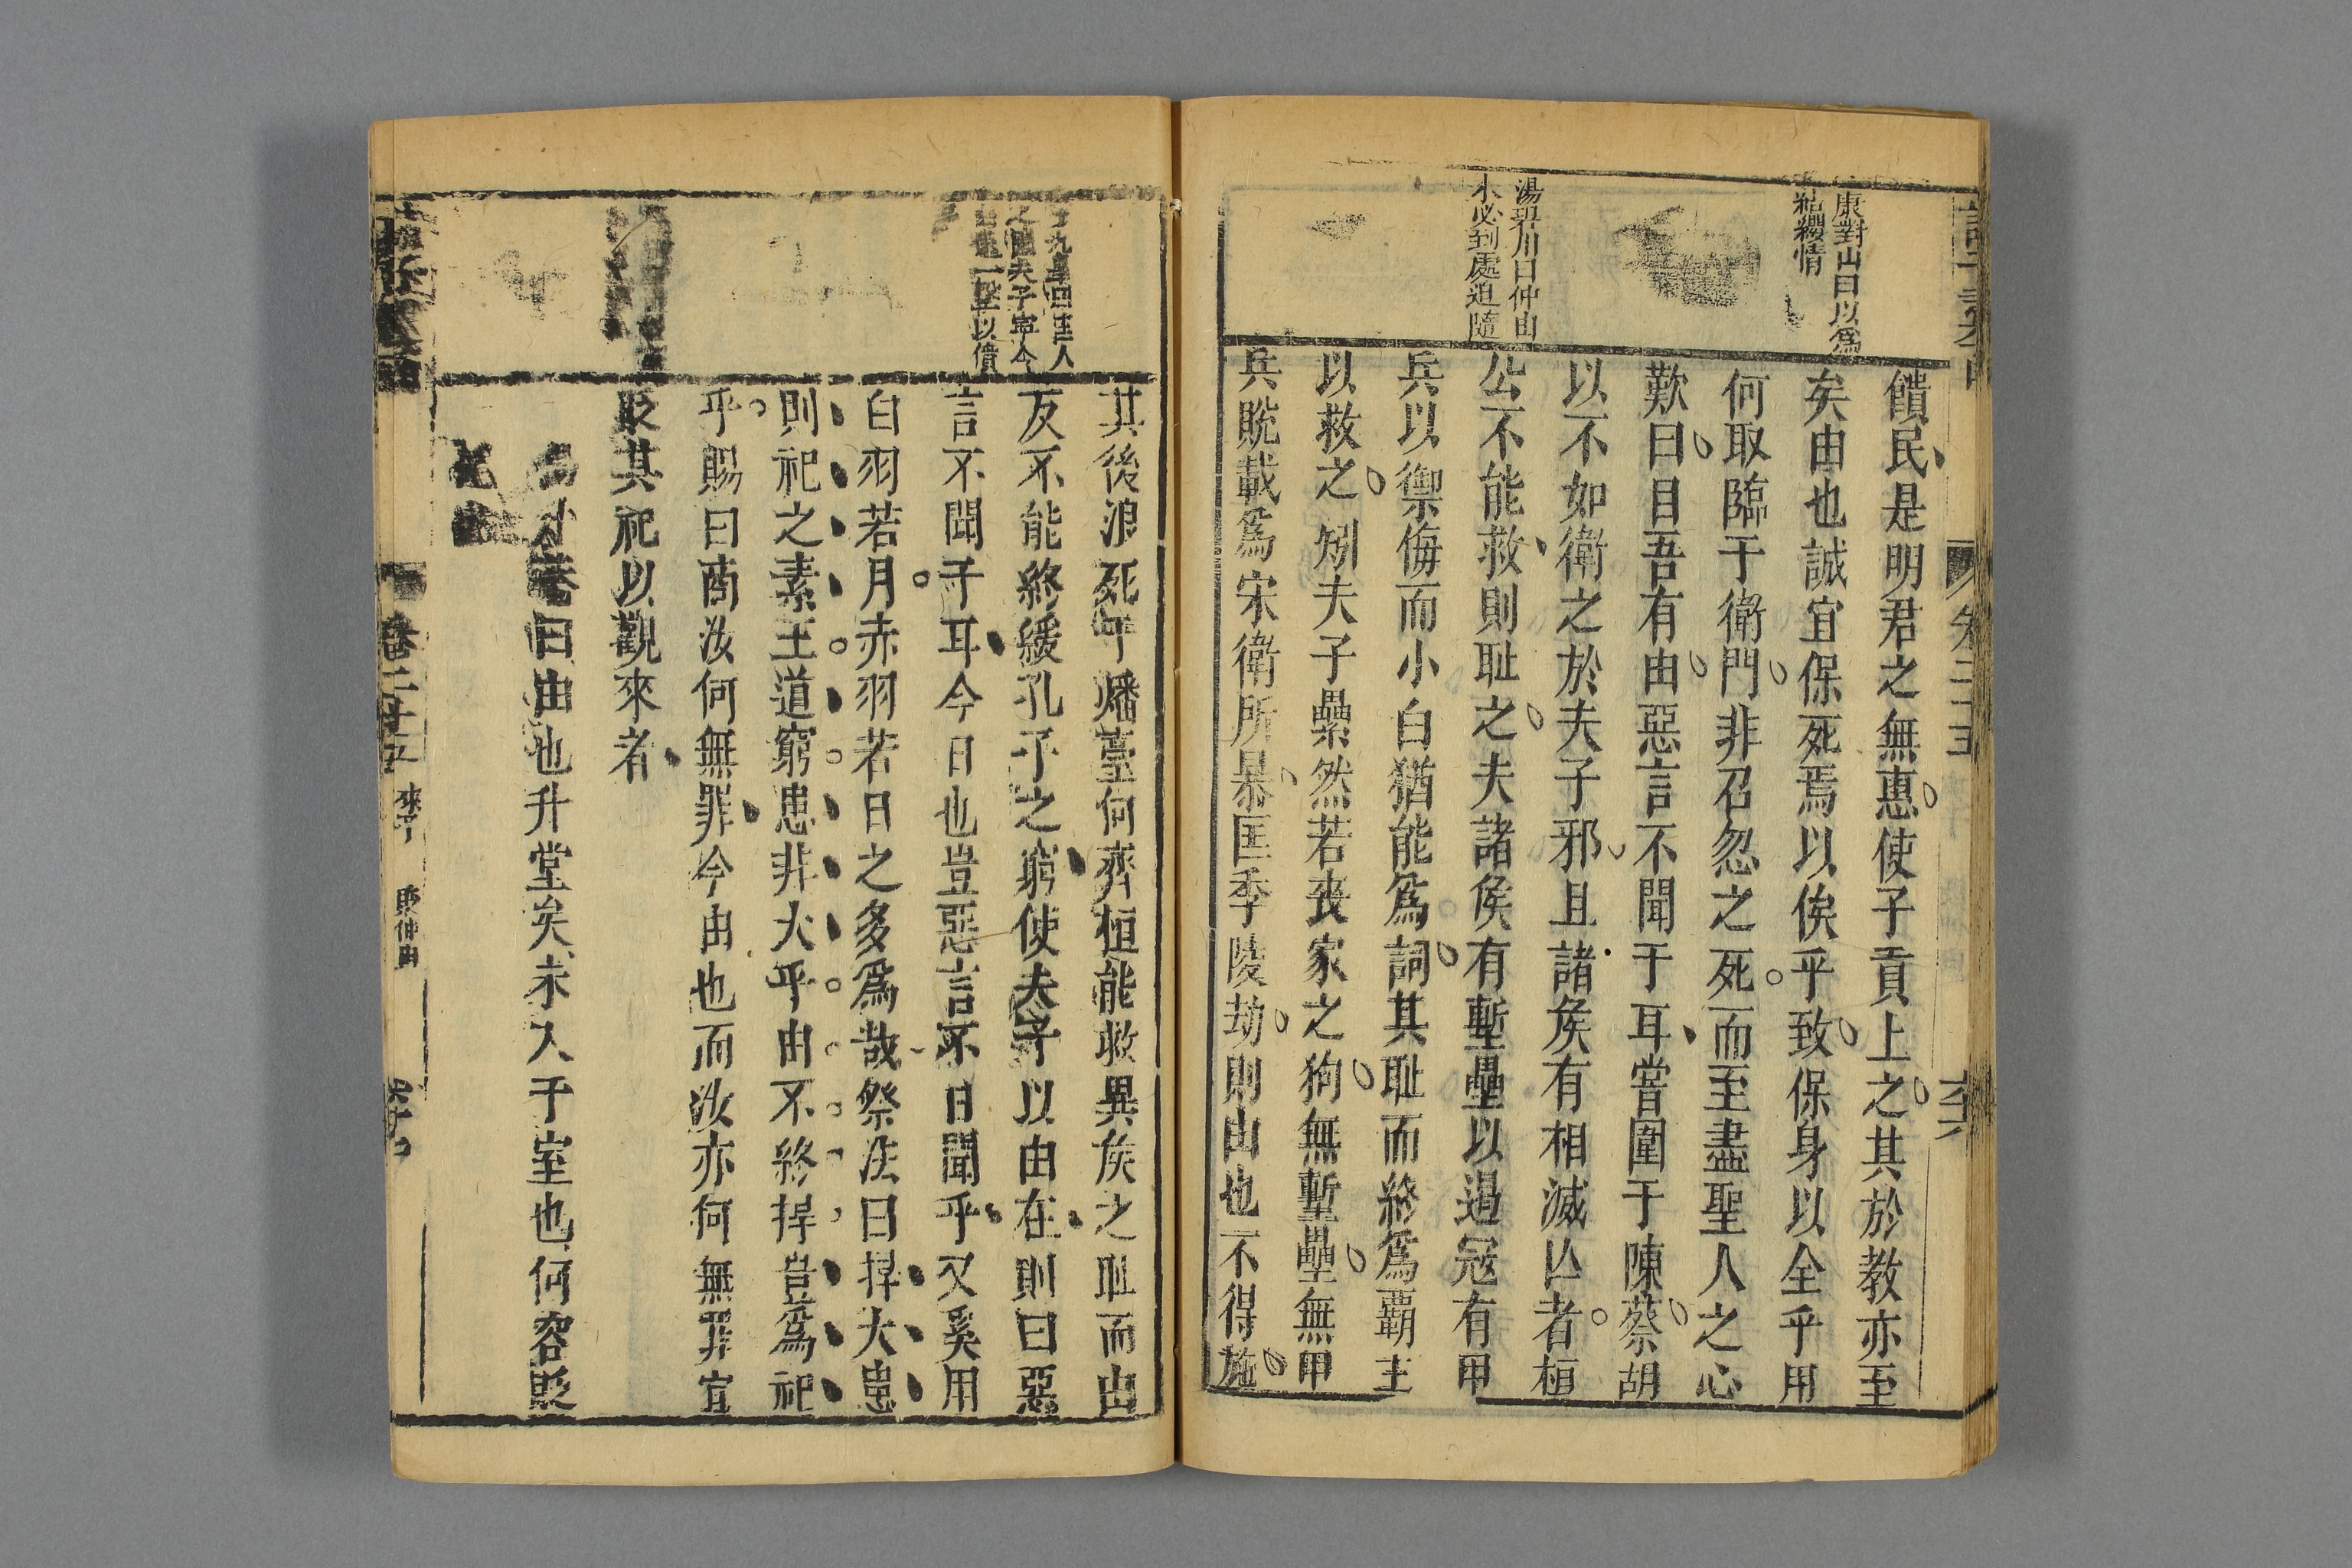 康對山曰以爲
結纓情
湯霍川曰仲由
未必到處追隨
饋民是明君之無惠使子貢上之其於教亦至
矣由也誠宜保死焉以俟乎致保身以全乎用
何取臨于衛門非召忽之死而至盡聖人之心
歎曰自吾有由惡言不聞于耳嘗圍于陳蔡胡
以不如衛之於夫子邪且諸矦有相滅亾者桓
公不能救則耻之夫諸矦有塹壘以遏寇有甲
兵以禦侮而小白猶能爲詞其耻而終爲覇主
以救之矧夫子纍然若喪家之狗無塹壘無甲
兵脫載爲宋衛所暴匡季陵劫則由也不得施
卷二十五
夫子寧今
一擊以償
其後浪死于燔臺何齊桓能救異矦之耻而由
反不能終緩孔子之窮使夫子以由在則曰惡
言不聞于耳今日也豈惡言不日聞乎又奚用
白羽若月赤羽若日之多爲哉祭法曰捍大患
則祀之素王道窮患非大乎由不終捍豈爲祀
乎賜曰商汝何無罪今由也而汝亦何無罪宜
貶其祀以觀來者
菴曰由也升堂矣未入于室也何容貶
卷二十五
貶仲由